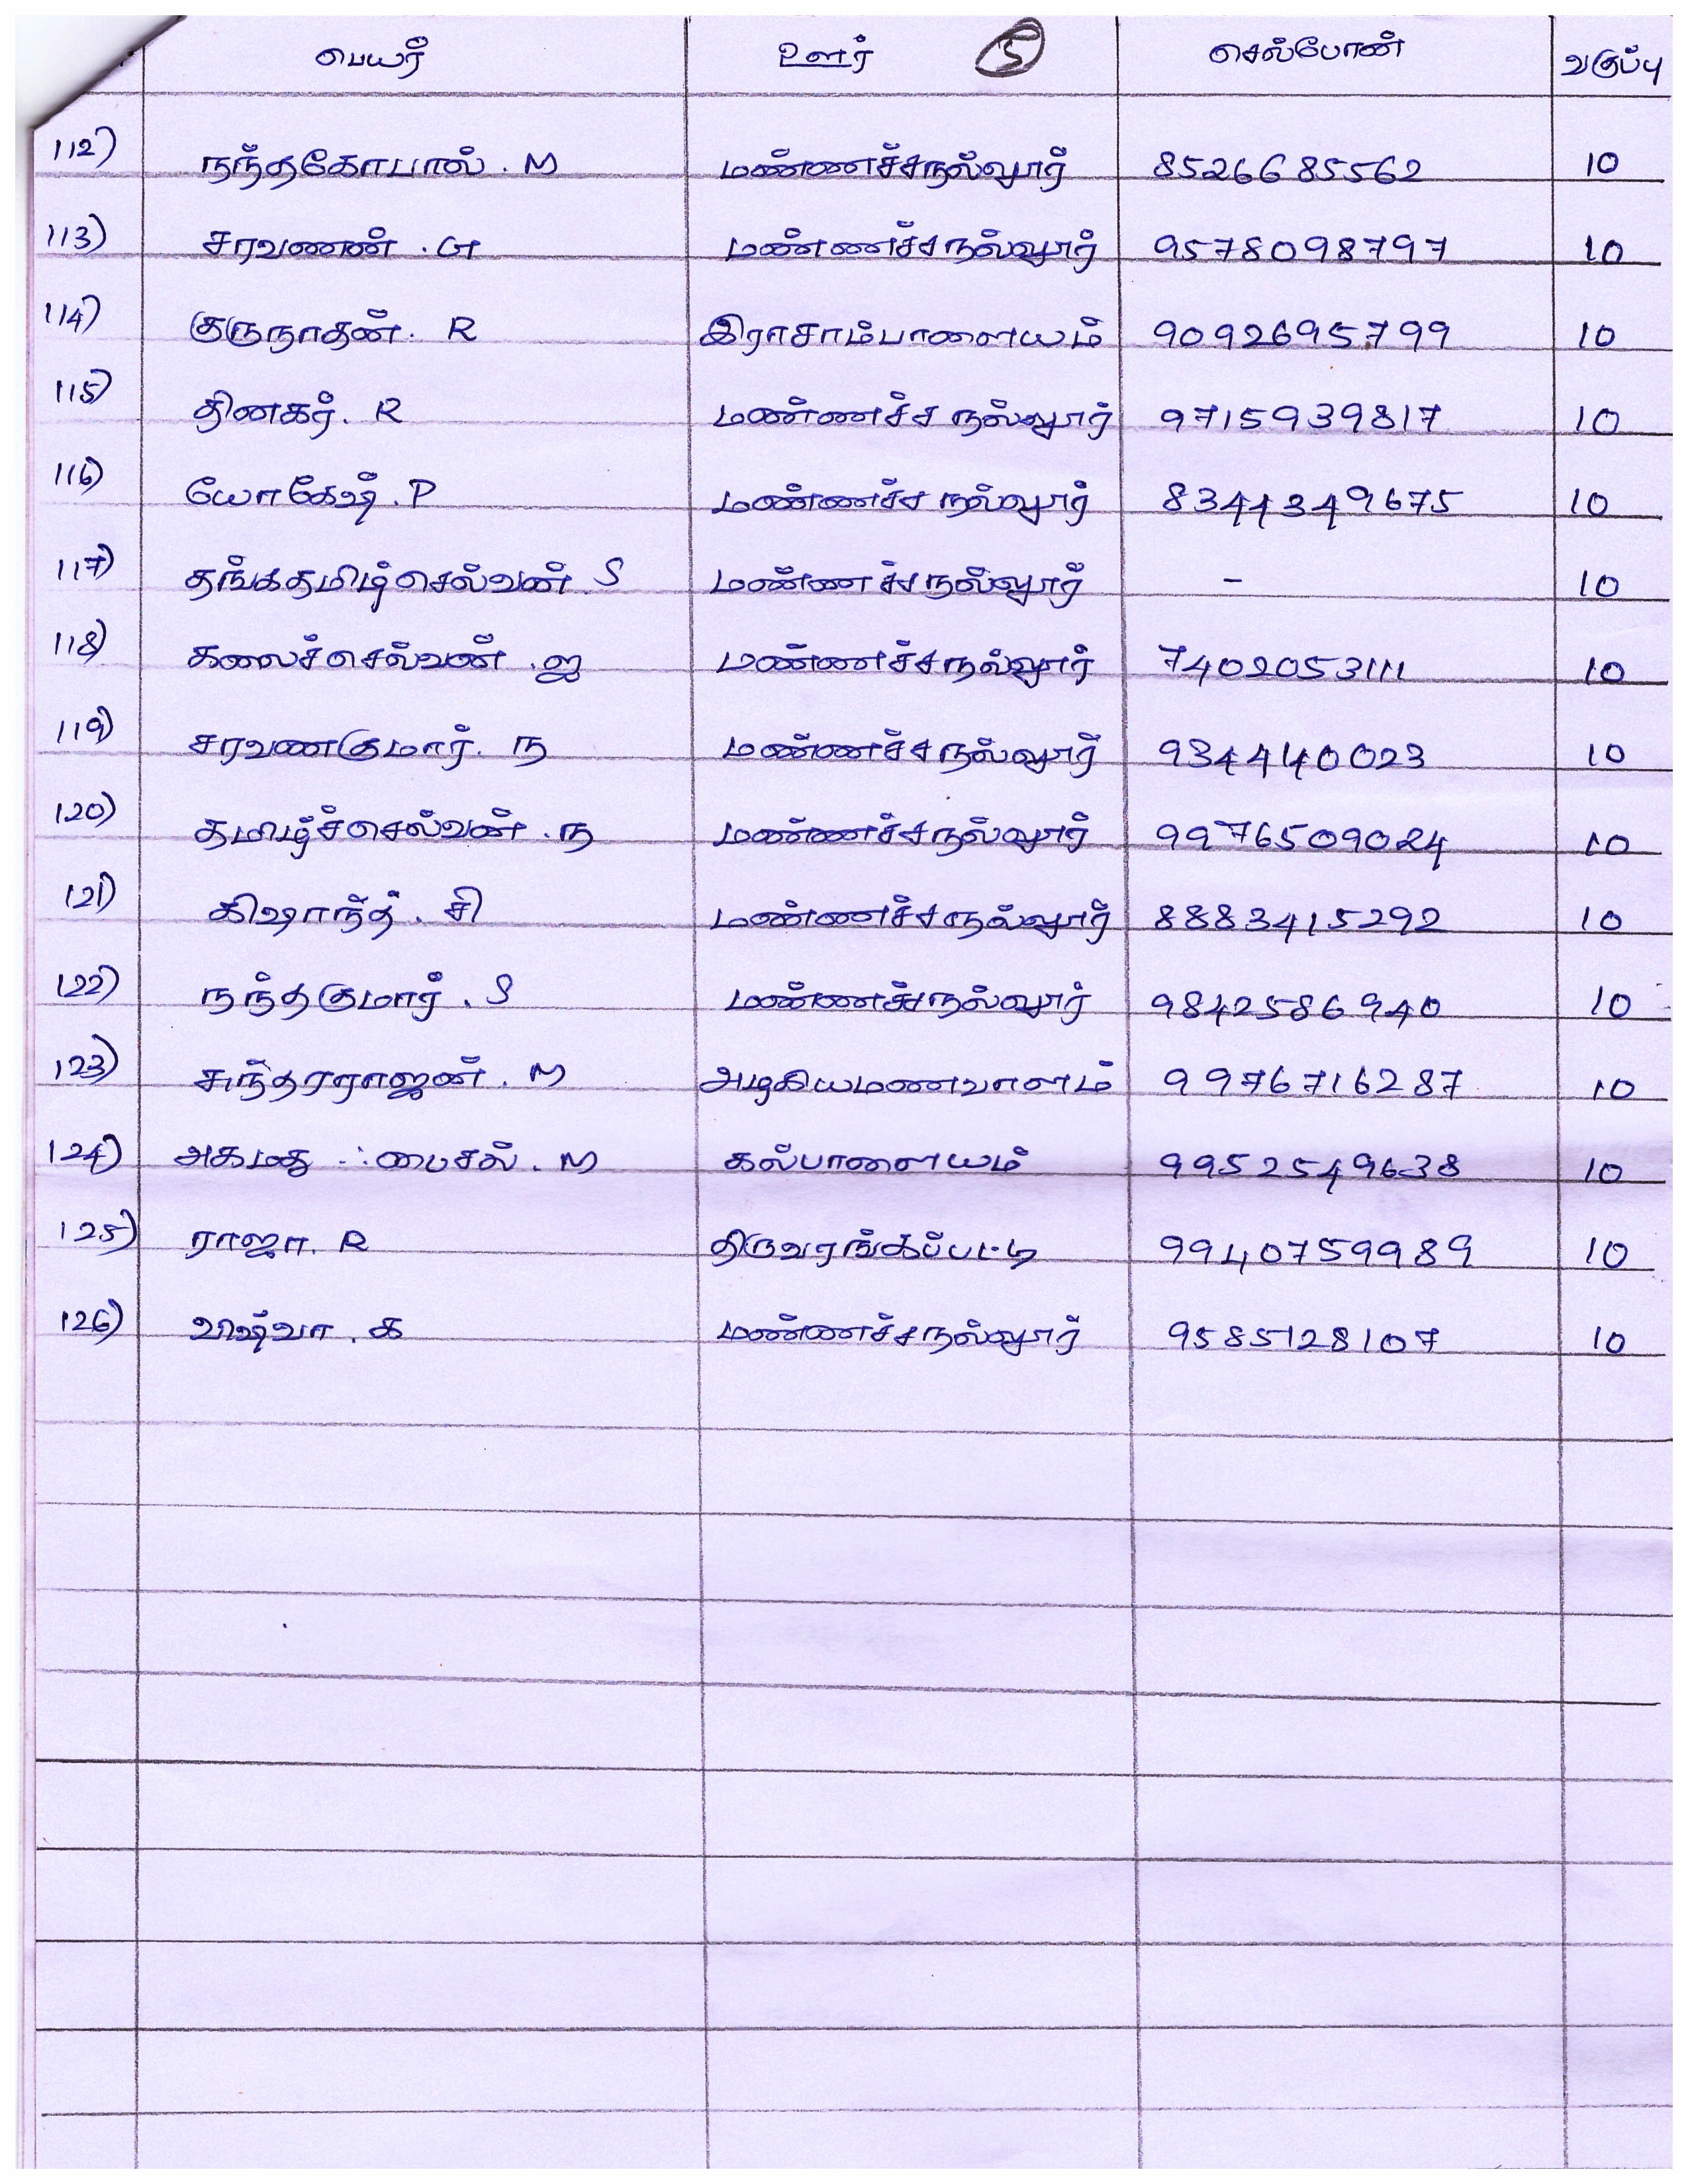 பெயர் ஊர் 5 செல்போன் வகுப்பு
112) நந்தகோபால் . M மண்ணச்சநல்லூர் 8526685562 10
113) சரவணன் . G மண்ணச்சநல்லூர் 9578098797 10
114) குருநாதன் . R இராசாம்பாளையம் 9092695799 10
115) தினகர் . R மண்ணச்சநல்லூர் 9715939817 10
116) யோகேஷ் . P மண்ணச்சநல்லூர் 8344349675 10
117) தங்கதமிழ்செல்வன் . S மண்ணச்சநல்லூர் - 10
118) கலைச்செல்வன் . ஜ மண்ணச்சநல்லூர் 7402053111 10
119) சரவணகுமார் . ந மண்ணச்சநல்லூர் 934440023 10
120) தமிழ்ச்செல்வன் . ந மண்ணச்சநல்லூர் 9976509024 10
121) கிஷாந்த் . சி மண்ணச்சநல்லூர் 8883415292 10
122) நந்தகுமார் . S மண்ணச்சநல்லூர் 9842586940 10
123) சுந்தரராஜன் . M அழகியமணவாளம் 9976716287 10
124) அகமது ஃபைசல் . M கல்பாளையம் 9952549638 10
125) ராஜா . R திருவரங்கப்பட்டி 9940759989 10
126) விஷ்வா . க மண்ணச்சநல்லூர் 9585128107 10